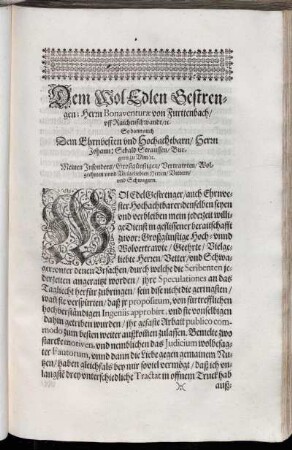 Dem Wol Edlen Gestren-
gen / Herrn Bonaventuræ von Furttenbach /
vff Reichenschwandt / ꝛc.
So dann auch
Dem Ehrnvesten vnd Hochachtbarn / Herrn
Johann: Sebald Straussen / Bur-
gern zu Vlm / ꝛc.
Meinen Insonders / Großgünstigen / Vertrawten / Wol-
geehrten vnnd Vilgeliebten Herrn / Vettern /
vnd Schwagern.
WOl Edel Gestrenger / auch Ehrnve-
ster Hochachtbarer / denselben seyen
vnd verbleiben mein jederzeit willi-
ge Dienst in geflissener beraitschafft
zuvor: Großgünstige Hoch- vnnd
Wolvertrawte / Geehrte / Vielge-
liebte Herren / Vetter / vnd Schwa-
ger / vnter denen Vrsachen / durch welche die Scribenten je-
derzeiten angeraitzt worden / jhre Speculationen an das
Tagliecht herfür zubringen / sein dise nicht die geringsten /
wañ sie verspürten / daß jr propositum, von fürtrefflichen
hochverständigen Ingeniis approbirt, vnd sie von selbigen
dahin getriben wurden / jhr gefaßte Arbait publico com-
modo zum besten weitter außkom̃en zulassen. Bemelte zwo
starcke motiven, vnd nemblichen das Judicium wolbesag-
ter Fautorum, vnnd dann die Liebe gegen gemainem Nu-
tzen / haben gleichfals bey mir soviel vermögt / daß ich vn-
langst drey vnterschiedliche Tractat in offnem Truck hab
auß-